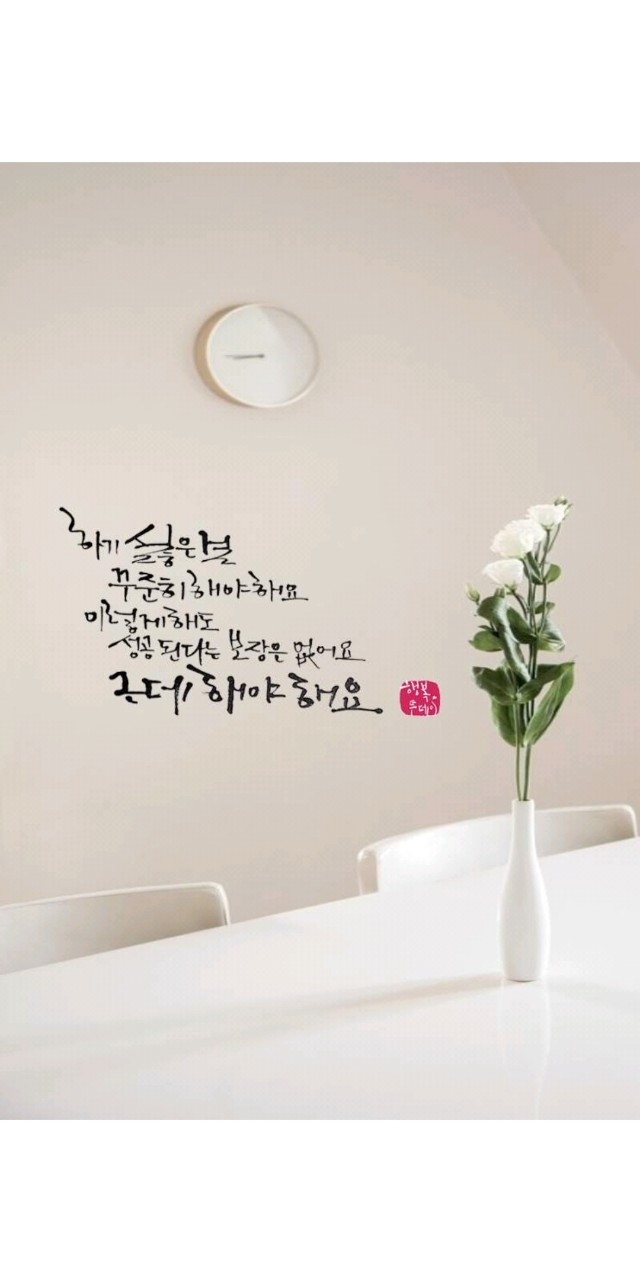 하기 싫은걸
꾸준히 해야해요
이렇게해도
성공 된다는 보장은 없어요
근데 해야 해요.
행복.
투데이